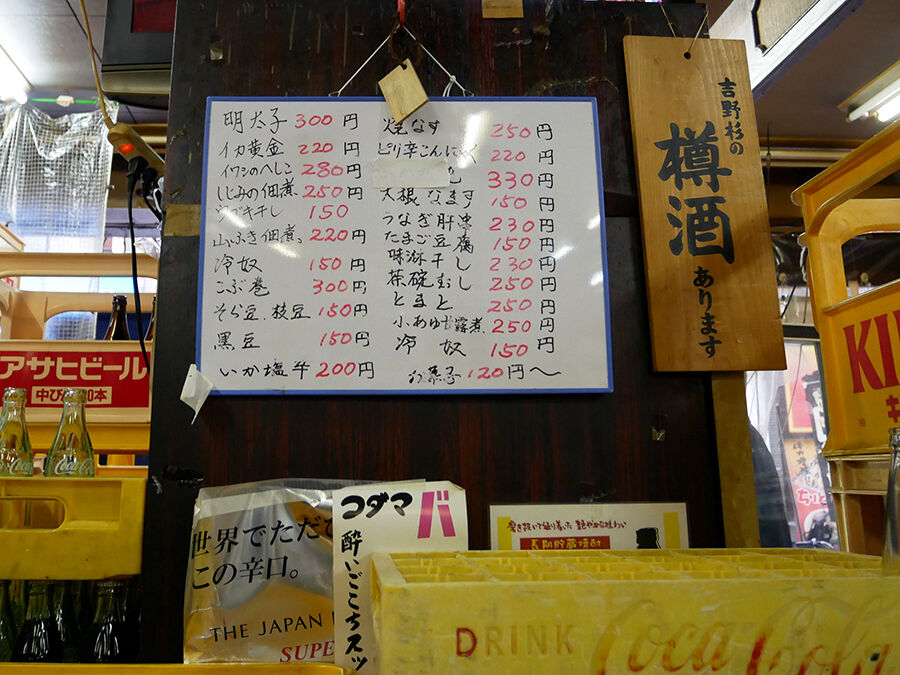 明太子 300 円
イカ黄金 220 円
イワシのへしこ 280 円
しじみの佃煮 250 円
干し 150
山ぶき佃煮 220 円
冷奴 150 円
こぶ巻 300 円
そら豆、枝豆 150 円
黒豆 150 円
いか塩辛 200 円
焼なす 250 円
ピリ辛こんにゃく 220 円
330 円
大根なます 150 円
うなぎ肝 230 円
たまご豆腐 150 円
味淋干し 230 円
茶碗むし 250 円
とまと 250 円
小あゆ甘露煮 250 円
冷奴 150 円
お菓子 120 円〜
吉野杉の
樽酒
あります
アサヒビール
中びん20本
Coca-Cola
Coca-Cola
世界でただひ
この辛口。
THE JAPAN
SUPE
コダマ
バ
酔いごこちスッ
磨き抜いて造り着いた艶やかな味わい
長期貯蔵焼酎
DRINK Coca-Cola
KI
キ